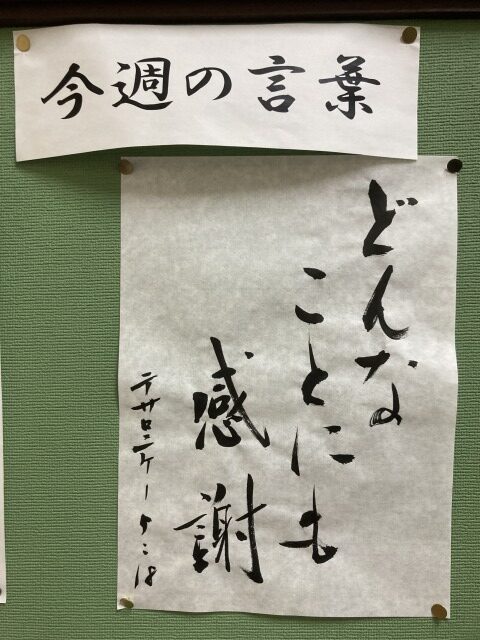 今週の言葉
どんな
ことにも
感謝
テサロニケ一 5:18